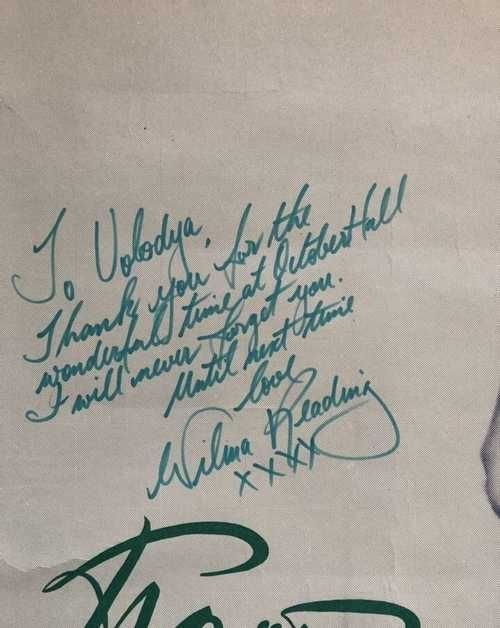 To Volodya,
Thank you for the
wonderful time at October Hall
I will never forget you.
Until next time
love
Wilma Reading
xxxx